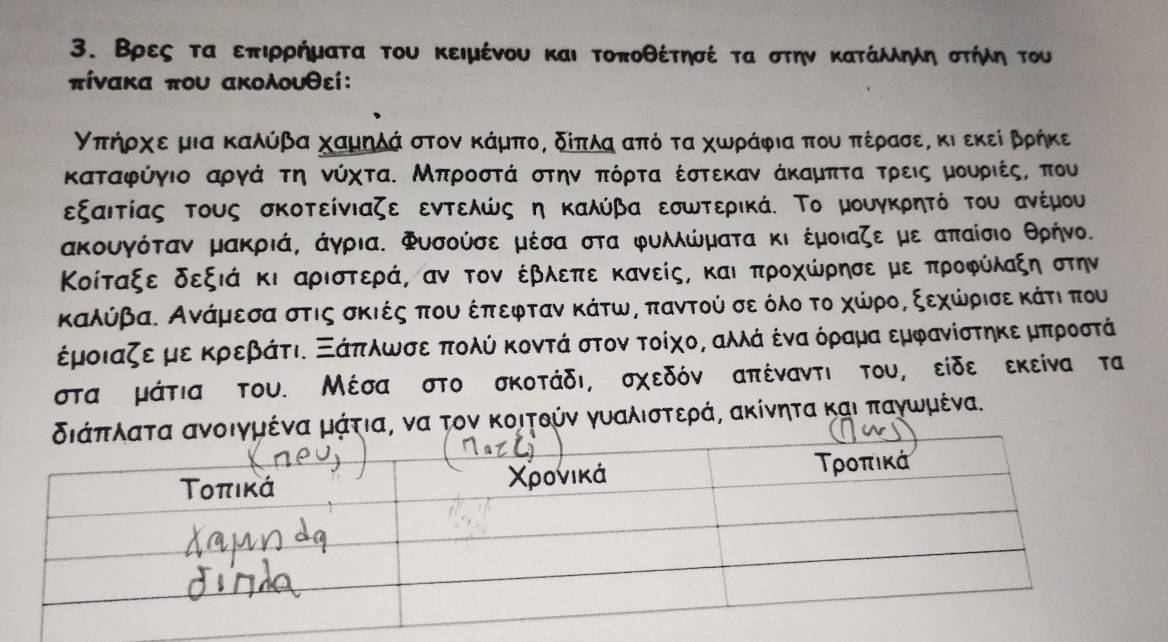 3. Βρες τα επιρρήματα του κειμένου και τοποθέτησέ τα στην κατάλληλη στήλη του
πίνακα που ακολουθεί:
Υπήρχε μια καλύβα χαμηλά στον κάμπο, δίπλα από τα χωράφια που πέρασε, κι εκεί βρήκε
καταφύγιο αργά τη νύχτα. Μπροστά στην πόρτα έστεκαν άκαμπτα τρεις μουριές, που
εξαιτίας τους σκοτείνιαζε εντελώς η καλύβα εσωτερικά. Το μουγκρητό του ανέμου
ακουγόταν μακριά, άγρια. Φυσούσε μέσα στα φυλλώματα κι έμοιαζε με απαίσιο θρήνο.
Κοίταξε δεξιά κι αριστερά, αν τον έβλεπε κανείς, και προχώρησε με προφύλαξη στην
καλύβα. Ανάμεσα στις σκιές που έπεφταν κάτω, παντού σε όλο το χώρο, ξεχώρισε κάτι που
έμοιαζε με κρεβάτι. Ξάπλωσε πολύ κοντά στον τοίχο, αλλά ένα όραμα εμφανίστηκε μπροστά
στα μάτια του. Μέσα στο σκοτάδι, σχεδόν απέναντι του, είδε εκείνα τα
διάπλατα ανοιγμένα μάτια, να τον κοιτούν γυαλιστερά, ακίνητα και παγωμένα.
(που;) (Ποτέ;) (Πως)
Τοπικά Χρονικά Τροπικά
χαμηλα
διπλα